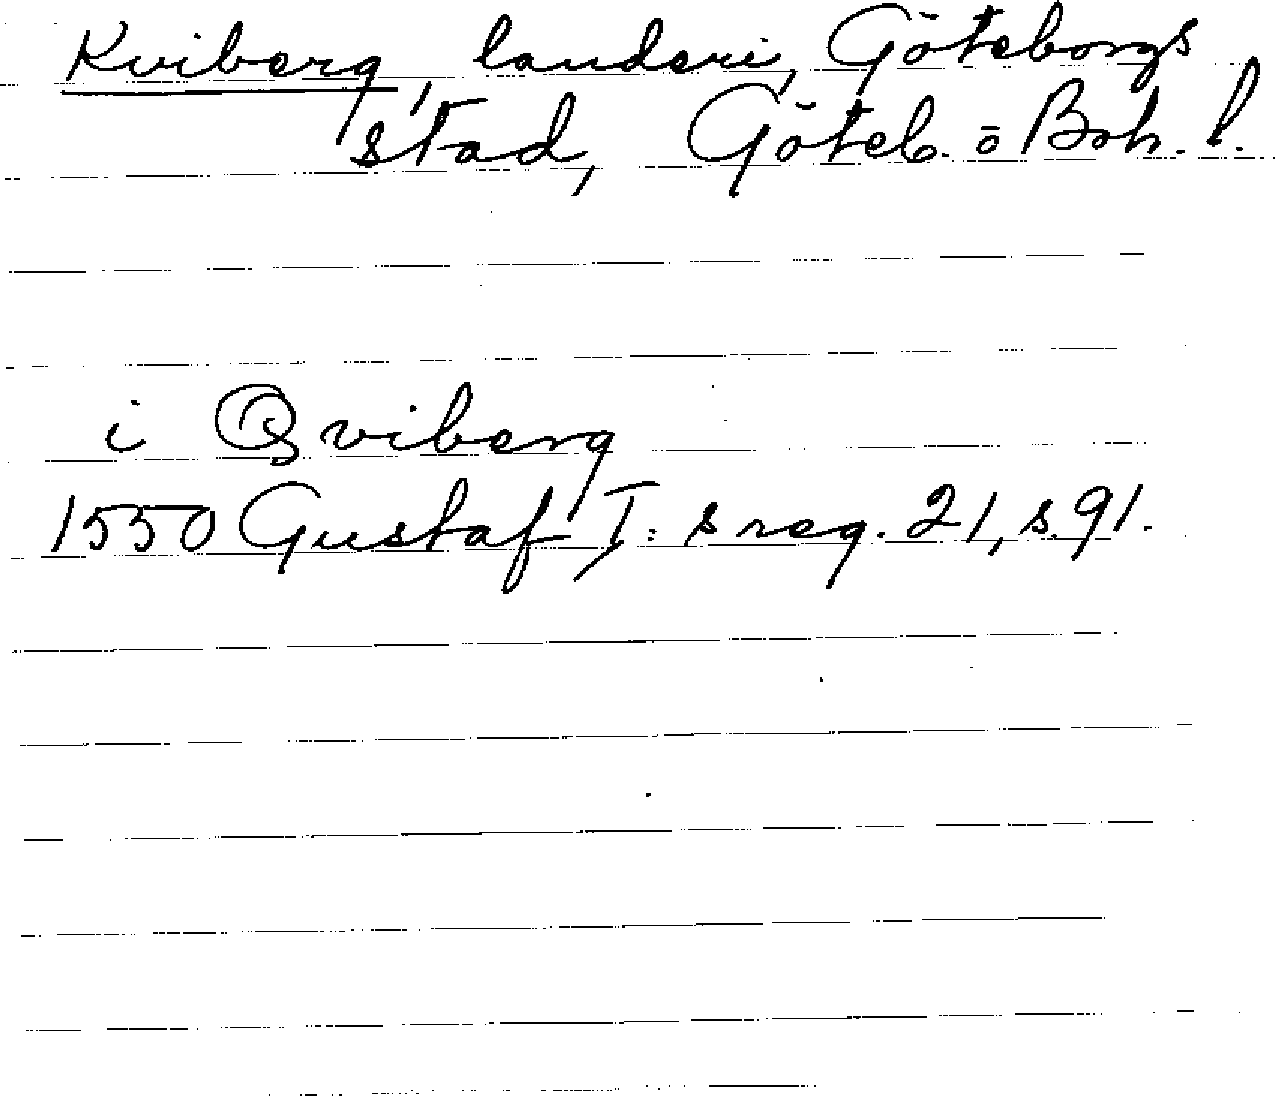 Kviberg, landeri, Göteborgs
stad, Göteb. o Boh. l.
i Qviberg
1550 Gustaf I:s reg. 21, s. 91.